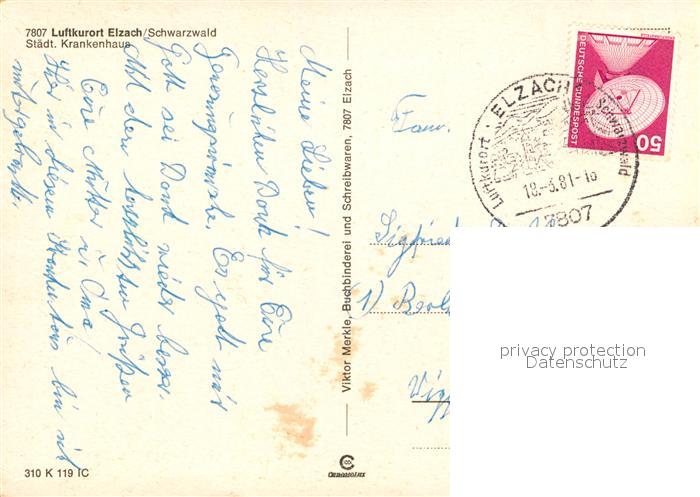 7807 Luftkurort Elzach/Schwarzwald
Städt. Krankenhaus
Meine Lieben!
Herzlichen Dank für Eure
Genesungswünsche. Es geht mir
Gott sei Dank wieder besser.
Mit den herzlichsten Grüßen
Eure Mutter u. Oma!
Hier in diesem Krankenhaus bin ich
mitgebracht.
Viktor Merkle, Buchbinderei und Schreibwaren, 7807 Elzach
Fam.
Sigfried
1) Berl
DEUTSCHE BUNDESPOST
50
Luftkurort · ELZACH · Schwarzwald
18.-3.81-16
7807
privacy protection
Datenschutz
310 K 119 IC
CHROMOLUX